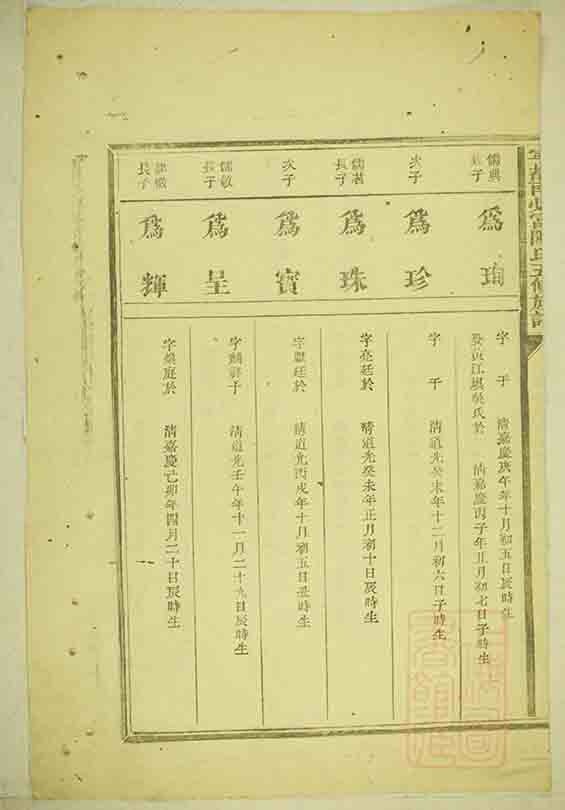 儒興
長子
爲珣
字 于 清嘉慶庚午年十月初五日辰時生
娶黃江琪吳氏於 清嘉慶丙子年五月初七日子時生
次子
爲珍
字 于 清道光癸未年十二月初六日子時生
儒著
長子
爲珠
字亮廷於 清道光癸未年正月初十日辰時生
次子
爲寶
字獻廷於 清道光丙戌年十月初五日丑時生
儒敏
長子
爲呈
字 于 清道光壬午年十一月二十九日辰時生
長子
爲輝
字 庭於 清嘉慶己卯年四月二十日辰時生